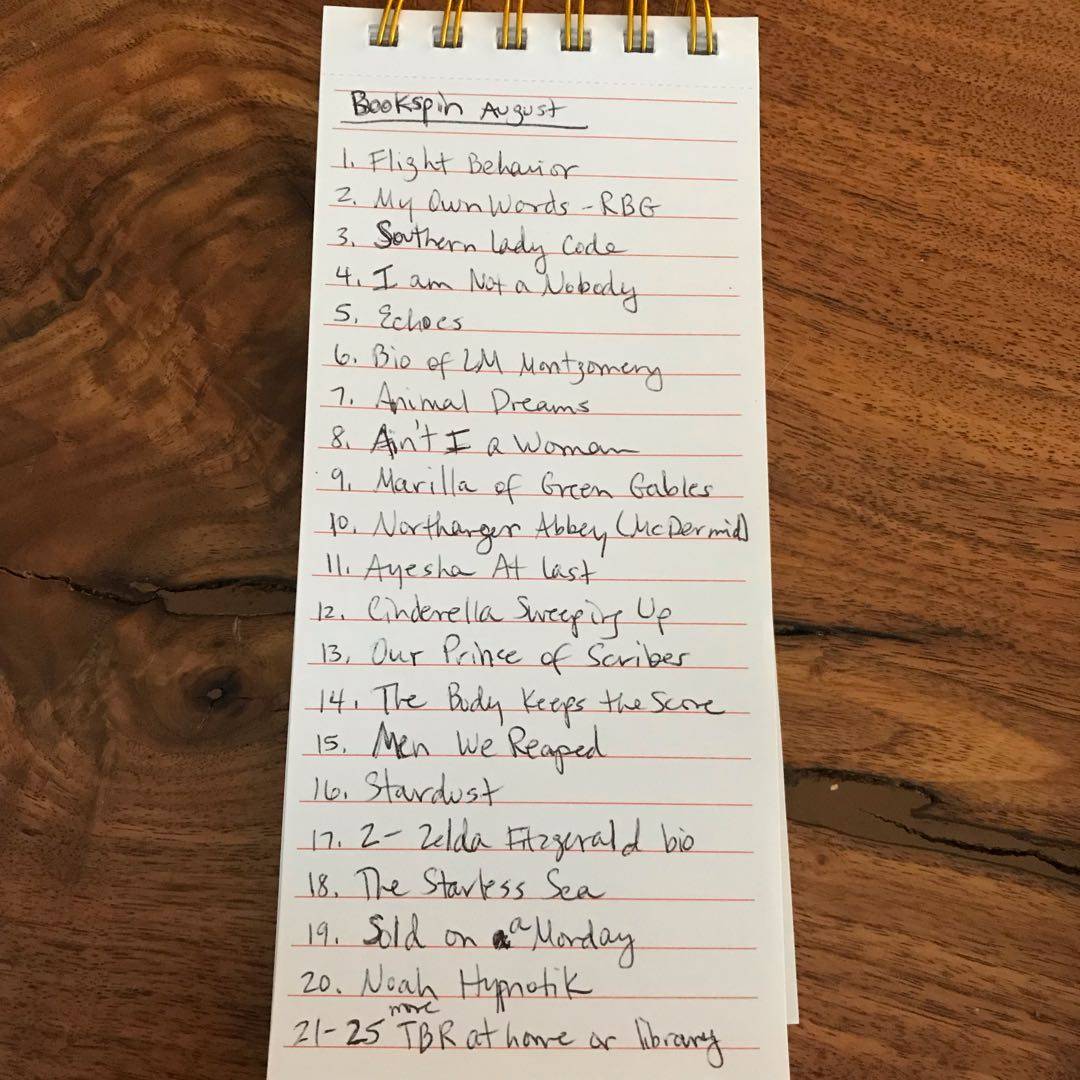 Bookspin August
1. Flight Behavior
2. My Own Words - RBG
3. Southern Lady Code
4. I am Not a Nobody
5. Echoes
6. Bio of LM Montgomery
7. Animal Dreams
8. Ain't I a Woman
9. Marilla of Green Gables
10. Northanger Abbey (McDermid)
11. Ayesha At Last
12. Cinderella Sweeping Up
13. Our Prince of Scribes
14. The Body Keeps the Score
15. Men We Reaped
16. Stardust
17. Z - Zelda Fitzgerald bio
18. The Starless Sea
19. Sold on a Monday
20. Noah Hypnotik
more
21-25 TBR at home or library